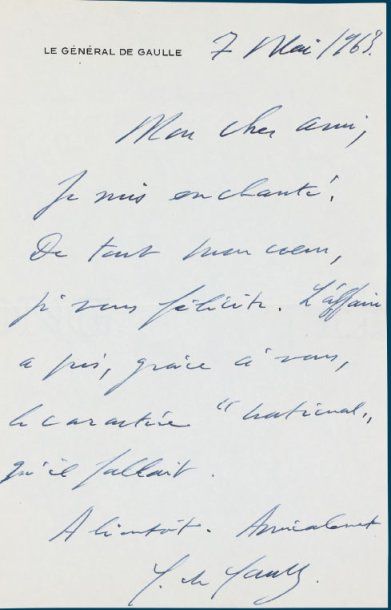 LE GÉNÉRAL DE GAULLE
7 Mai 1963.
Mon cher ami,
Je suis enchanté.
De tout mon cœur,
je vous félicite. L'affaire
a pris, grâce à vous,
le caractère "national"
qu'il fallait.
A bientôt. Amicalement
C. de Gaulle.